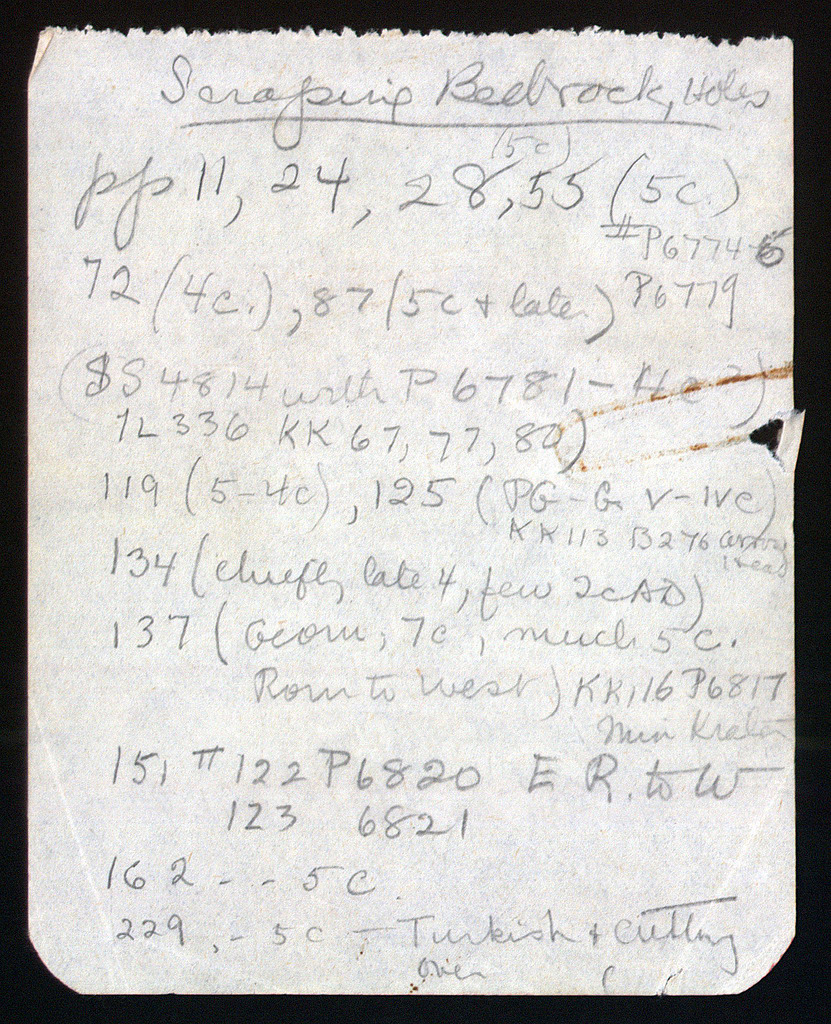 Scraping Bedrock, Holes
(5c)
pp 11, 24, 28, 55 (5c.)
#P6774-6
72 (4c.), 87 (5c + later) P6779
(SS 4814 with P 6781 - 4c?)
1L 336 KK 67, 77, 80)
119 (5-4c), 125 (PG-G V-IVc)
KK 113 B276 arrow
head
134 (chiefly late 4, few 2cAD)
137 (Geom, 7c, much 5c.
Rom to west) KK 116 P6817
Min Krater
151 # 122 P6820 E R. to W
123 6821
162 - - 5c.
229, - 5c - Turkish + cutting
over